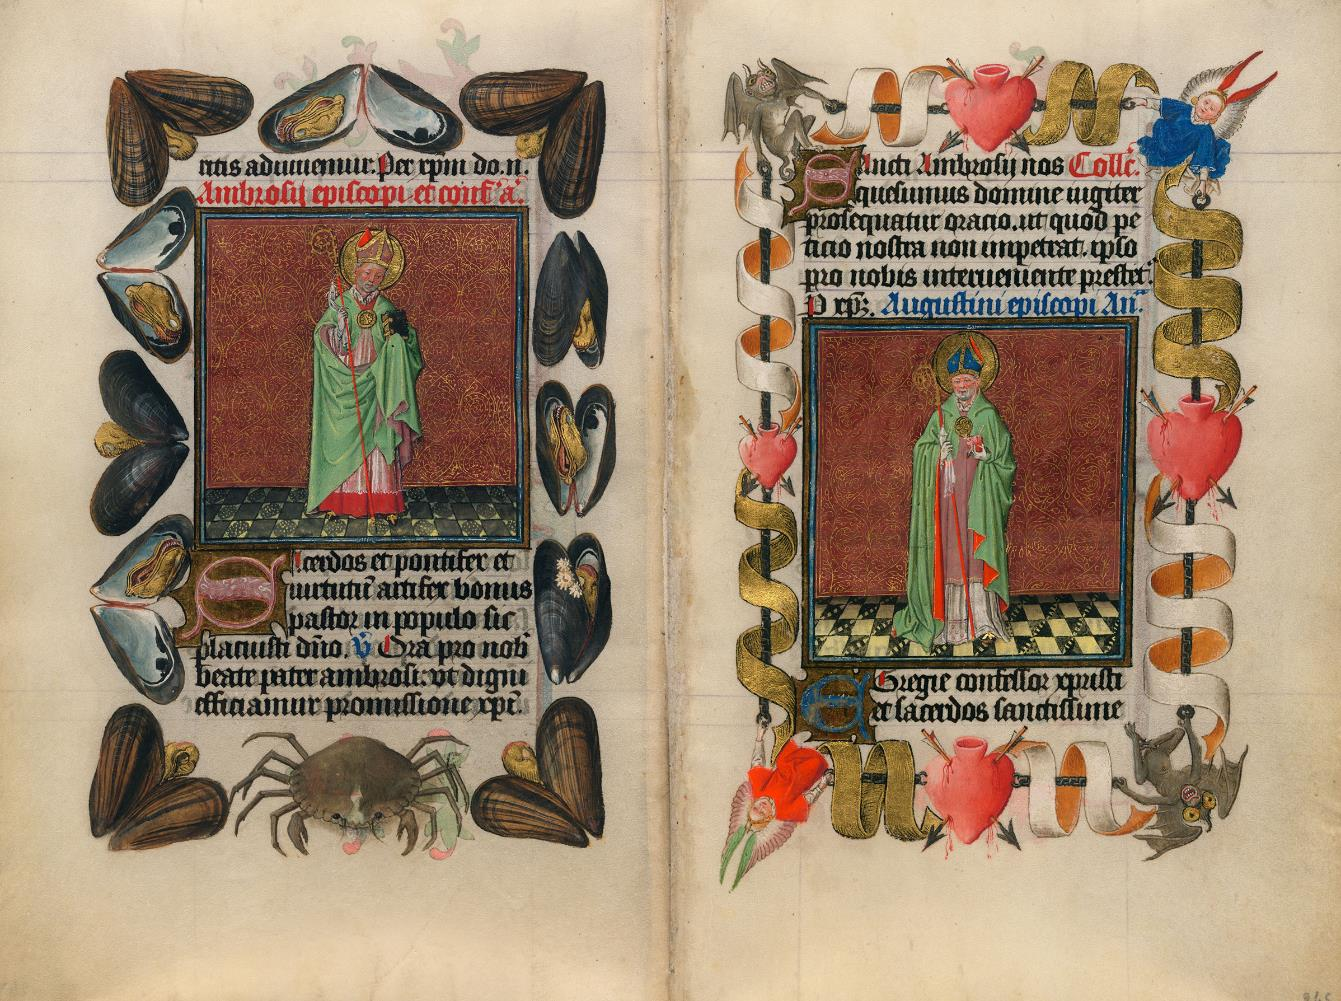 ritis adiuuemur. Per xpm do. n.
Ambrosij episcopi et conf. a.
Sacerdos et pontifex et
uirtutū artifex bonus
pastor in populo sic
placuisti dño. V Ora pro nob
beate pater ambrosi. vt digni
efficiamur promissione xpi.
Sancti Ambrosij nos Collc.
quesumus domine iugiter
prosequatur oracio. ut quod pe
ticio nostra non impetrat. ipso
pro nobis interueniente prestet.
P xpz. Augustini episcopi An.
Egregie confessor xpristi
et sacerdos sanctissime